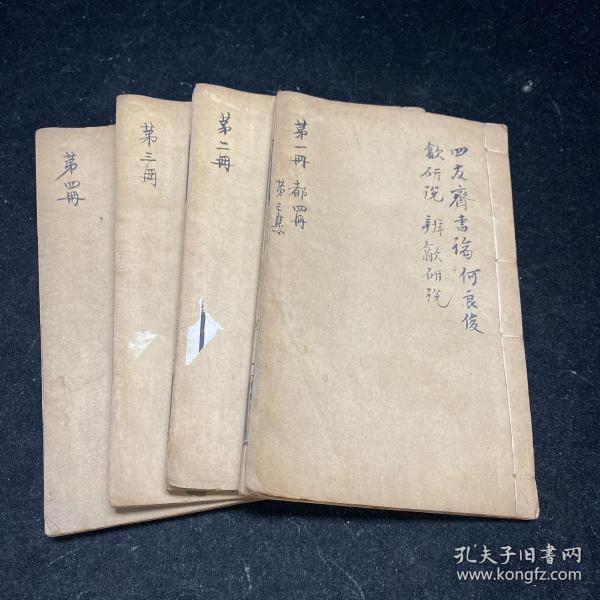 四友齋書論 何良俊
歙研說 辨歙研說
第一冊 都四冊
第三集
第二冊
第三冊
第四冊
孔夫子旧书网
www.kongfz.com